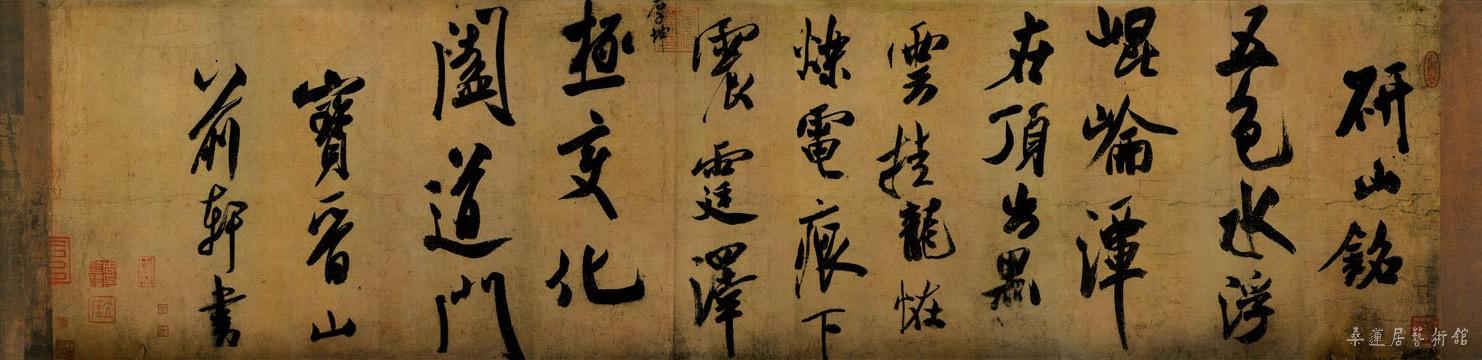 研山銘
五色水浮
崐崘潭
在頂出黑
雲挂龍怪
爍電痕下
震霆澤
極變化
闔道門
寶晉山
前軒書
桑蓮居藝術館